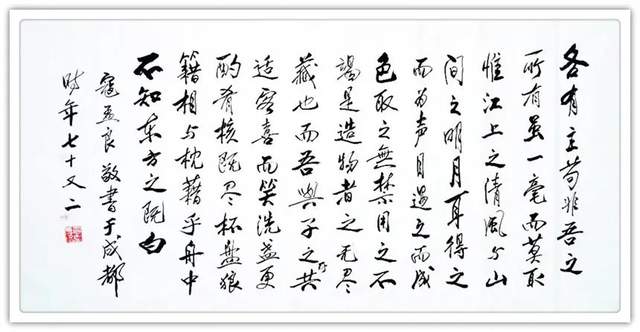 各有主苟非吾之
所有虽一毫而莫取
惟江上之清風与山
间之明月耳得之
而为声目遇之而成
色取之無禁用之不
竭是造物者之无尽
藏也而吾與子之所共
适客喜而笑洗盏更
酌肴核既尽杯盘狼
籍相与枕藉乎舟中
不知东方之既白
寇孟良敬书于成都
时年七十又二